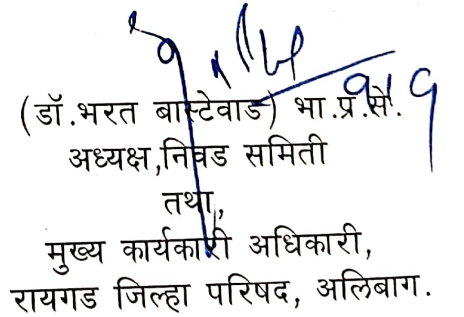 (डॉ.भरत बास्टेवाड) भा.प्र.से.
अध्यक्ष,निवड समिती
तथा,
मुख्य कार्यकारी अधिकारी,
रायगड जिल्हा परिषद, अलिबाग.